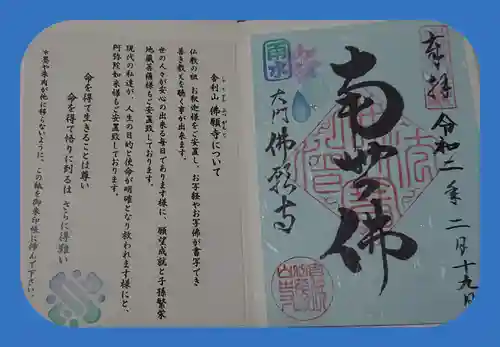 奉拝
令和二年二月十九日
南無佛
雨水
大門 佛願寺
しゃりざん ぶつがんじ
舎利山 佛願寺について
仏教の祖 お釈迦様をご安置し、お写経やお写佛が書写でき
善き教えを聴く事が出来ます。
世の人々が安心の出来る毎日であります様に、願望成就と子孫繁栄
地蔵菩薩様もご安置致しております。
現代の私達が、人生の目的と使命が明確となり救われます様にと、
阿弥陀如来様もご安置致しております。
命を得て生きることは尊い
命を得て悟りに到るは さらに得難い
※墨や朱肉が他に移らないように、この紙を御朱印帳に挿んで下さい。